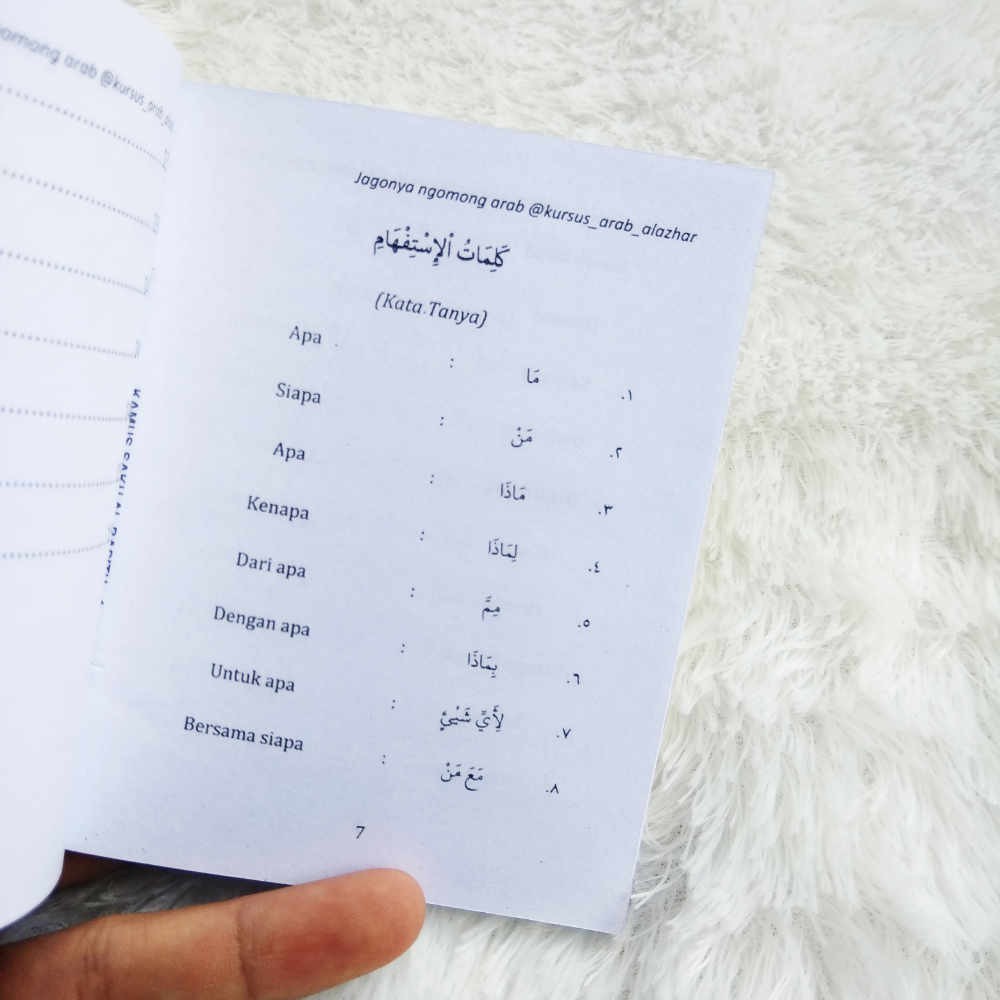 omong arab @kursus_arab_
Jagonya ngomong arab @kursus_arab_alazhar
كَلِمَاتُ اْلإِسْتِفْهَامِ
(Kata Tanya)
١. مَا : Apa
٢. مَنْ : Siapa
٣. مَاذَا : Apa
٤. لِمَاذَا : Kenapa
٥. مِمَّ : Dari apa
٦. بِمَاذَا : Dengan apa
٧. لِأَيِّ شَيْئٍ : Untuk apa
٨. مَعَ مَنْ : Bersama siapa
7